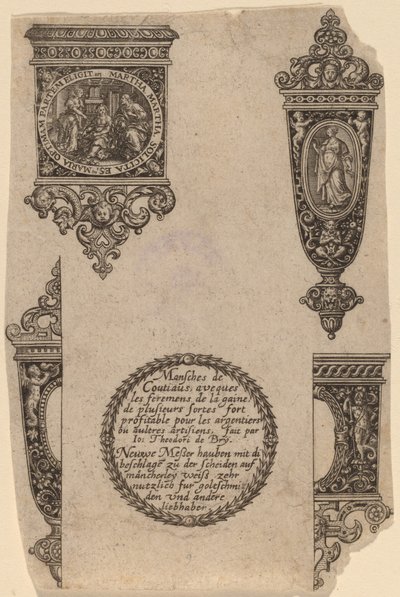 MARTHA MARTHA SOLICITA ES MARIA OPTIMAM PARTEM ELIGIT
Mansches de
Coutiaús, aveques
les feremens de la gaine,
de plusieurs sortes fort
profitable pour les argentiers
ou aultres artisiens, fait par
Io: Theodori de Bry.
Neuwe Messer hauben mit di
beschläge zu der scheiden auf
mancherley weiß zehr
nutzlich fur goleschmi
den vnd andere
liebhaber.